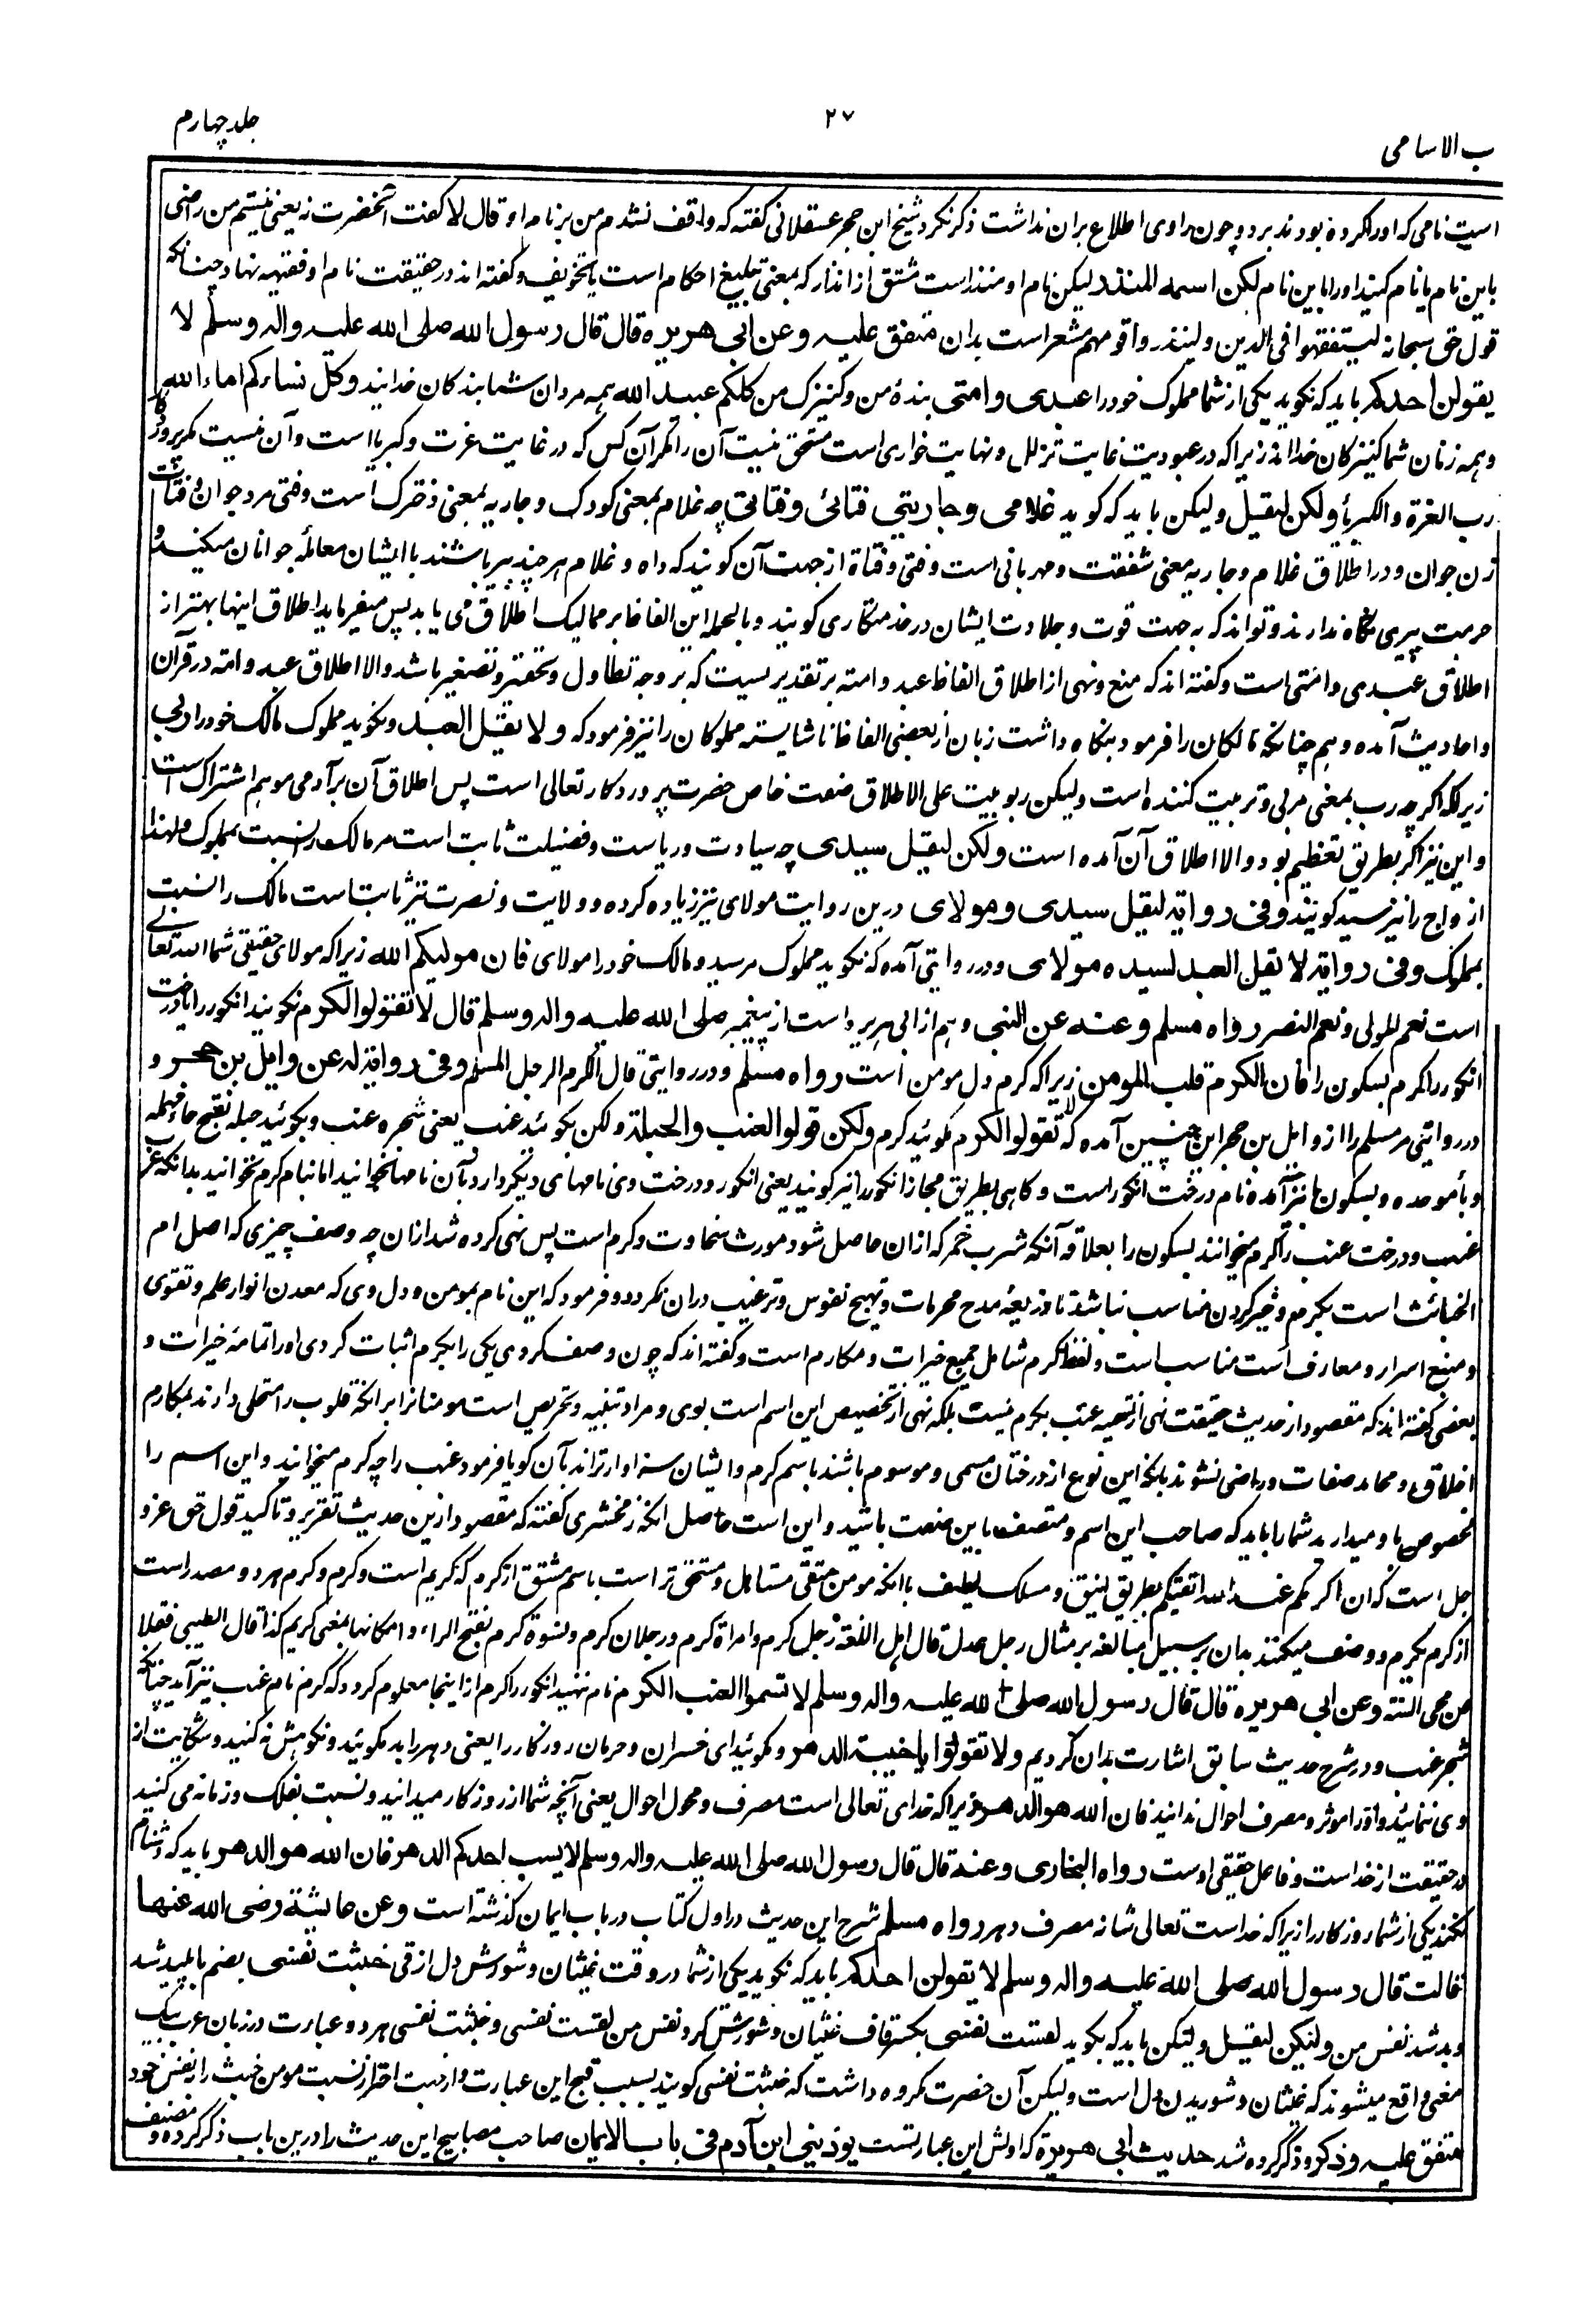 جلد چهارم
۲۷
ب الاسامی
است نامی که اورا کرده بودند برد و چون راوی اطلاع بران نداشت ذکر نکرد شیخ ابن حجر عسقلانی گفته که واقف نشدم من بر نام او قال لا گفت آنحضرت نه یعنی نیستم من راضی
باین نام یا نام کنید اورا باین نام لکن اسمه المنذر لیکن نام او منذر است مشتق از انذار که بمعنی تبلیغ احکام است یا تخویف و گفته اند در حقیقت نام او فقیهه نهاد چنانکه
قول حق سبحانه لیتفقهوا فی الدین و لینذروا قومهم مشعر است بدان متفق علیه وعن ابی هریرة قال قال رسول الله صلی الله علیه واله وسلم لا
یقولن احدکم باید که نگوید یکی از شما مملوک خود را عبدی وامتی بندهٔ من و کنیزک من کلکم عبید الله همه مردان شما بندگان خدایند وکل نساءکم اماء الله
و همه زنان شما کنیزکان خدا اند زیرا که در عبودیت غایت تزلل و نهایت خواری است مستحق نیست آن را مگر آن کس که در غایت عزت و کبریا است و آن نیست مگر پروردگار
رب العزة والکبریاء ولکن لیقل ولیکن باید که گوید غلامی وجاریتی فتائی وفتاتی چه غلام بمعنی کودک و جاریه بمعنی دخترک است و فتی مرد جوان و فتات
زن جوان و در اطلاق غلام و جاریه معنی شفقت و مهربانی است و فتی و فتاة از جهت آن گویند که داه و غلام هر چند پیر باشند با ایشان معامله جوانان میکنند و
حرمت پیری نگاه ندارند و تواند که به جهت قوت و جلادت ایشان در خدمتگاری گویند و بالجمله این الفاظ بر ممالیک اطلاق می یابد پس میفرماید اطلاق اینها بهتر از
اطلاق عبدی و امتی است و گفته اند که منع و نهی از اطلاق الفاظ عبد و امته بر تقدیریست که بر وجه تطاول و تحقیر و تصغیر باشد والا اطلاق عبد و امته در قرآن
و احادیث آمده و هم چنانکه مالکان را فرمود بنگاه داشت زبان از بعضی الفاظ ناشایسته مملوکان را نیز فرمود که ولا یقل العبد و نگوید مملوک مالک خود را ربی
زیرا که اگرچه رب بمعنی مربی و تربیت کننده است ولیکن ربوبیت علی الاطلاق صفت خاص حضرت پروردگار تعالی است پس اطلاق آن برآدمی موهم اشتراک است
و این نیز اگر بطریق تعظیم بود والا اطلاق آن آمده است ولکن لیقل سیدی چه سیادت و ریاست و فضیلت ثابت است مر مالک را نسبت بمملوک و لهذا
ازواج را نیز سید گویند وفی روایة لیقل سیدی ومولای درین روایت مولای نیز زیاده کرده و ولایت و نصرت نیز ثابت است مالک را نسبت
بمملوک وفی روایة لا یقل العبد لسیده مولای و در روایتی آمده که نگوید مملوک مر سید و مالک خود را مولای فان مولیکم الله زیرا که مولای حقیقی شما الله تعالی
است نعم المولی ونعم النصیر رواه مسلم وعنه عن النبی و هم از ابی هریره است از پیغمبر صلی الله علیه واله وسلم قال لا تقولوا الکرم نگویند انگور را یا درخت
انگور را کرم بسکون را فان الکرم قلب المومن زیرا که کرم دل مومن است رواه مسلم و در روایتی قال الکرم الرجل المسلم وفی روایة له عن وایل بن حجر و
در روایتی مر مسلم را از وایل بن حجر این چنین آمده که لا تقولوا الکرم نگوئید کرم ولکن قولوا العنب والحبلة ولکن بگوئید عنب یعنی شجره عنب و بگوئید حبله بفتح حاء مهمله
و باء موحده و بسکون با نیز آمده نام درخت انگور است و گاهی بطریق مجاز انگور را نیز گویند یعنی انگور و درخت وی نامهای دیگر دارد بآن نامها بخوانید اما بنام کرم نخوانید بدانکه عرب
عنب و درخت عنب را کرم میخوانند بسکون را بعلاقه آنکه شرب خمر که ازان حاصل شود مورث سخاوت و کرم است پس نهی کرده شد ازان چه وصف چیزی که اصل ام
الخبائث است بکرم و خیر کردن مناسب نباشد تا ذریعهٔ مدح محرمات و تهییج نفوس و ترغیب دران نگردد و فرمود که این نام بمومن و دل وی که معدن انوار علم و تقوی
و منبع اسرار و معارف است مناسب است و لفظ کرم شامل جمیع خیرات و مکارم است و گفته اند که چون وصف کردی یکی را بکرم اثبات کردی اورا تمامهٔ خیرات و
بعضی گفته اند که مقصود از حدیث حقیقت نهی از تسمیه عنب بکرم نیست بلکه نهی از تخصیص این اسم است بوی و مراد تنبیه و تحریص است مومنان را بر آنکه قلوب را متحلی دارند بمکارم
اخلاق و محامد صفات و راضی نشوند بانکه این نوع از درختان مسمی و موسوم باشند باسم کرم و ایشان سزاوارتراند بآن گویا فرمود عنب را چه کرم میخوانید و این اسم را
مخصوص باو میدارید شما را باید که صاحب این اسم و متصف باین صفت باشید و این است حاصل آنکه زمخشری گفته که مقصود ازین حدیث تقریر و تاکید قول حق عز و
جل است که ان اکرمکم عند الله اتقیکم بطریق انیق و مسلک لطیف با آنکه مومن متقی مستاهل و مستحق تر است باسم مشتق از کرم که کریم است و کرم و کرم هر دو مصدر است
از کرم یکرم و وصف میکنند بدان بر سبیل مبالغه بر مثال رجل عدل قال اهل اللغة رجل کرم وامراة کرم ورجلان کرم ونسوة کرم بفتح الراء و اسکانها بمعنی کریم کذا قال الطیبی نقلا
عن محی السنة وعن ابی هریرة قال قال رسول الله صلی الله علیه واله وسلم لا تسموا العنب الکرم نام ننهید انگور را کرم ازاینجا معلوم گردد که کرم نام عنب نیز آمد چنانکه
شجر عنب و در شرح حدیث سابق اشارت بدان کردیم ولا تقولوا یا خیبة الدهر و مگوئید ای خسران و حرمان روزگار را یعنی دهر را بد مگوئید و نکوهش نه کنید و شکایت از
وی ننمائید و اورا موثر و مصرف احوال ندانید فان الله هو الدهر زیرا که خدای تعالی است مصرف و محول احوال یعنی آنچه شما از روزگار میدانید و نسبت بفلک و زمانه می کنید
در حقیقت از خداست و فاعل حقیقی اوست رواه البخاری وعنه قال قال رسول الله صلی الله علیه واله وسلم لا یسب احدکم الدهر فان الله هو الدهر باید که دشنام
نکند یکی از شما روزگار را زیرا که خداست تعالی شانه مصرف دهر رواه مسلم شرح این حدیث در اول کتاب در باب ایمان گذشته است وعن عایشة رضی الله عنها
قالت قال رسول الله صلی الله علیه واله وسلم لا یقولن احدکم باید که نگوید یکی از شما در وقت غیثان و شورش دل از قی خبثت نفسی بضم با پلید شد
و بد شد نفس من ولکن لیقل ولیکن باید که بگوید لقست نفسی بکسر قاف غثیان و شورش کرد نفس من لقست نفسی و خبثت نفسی هر دو عبارت در زبان عرب بیک
معنی واقع میشوند که غثیان و شوریدن دل است ولیکن آن حضرت مکروه داشت که خبثت نفسی گویند بسبب قبح این عبارت و از جهت احتراز نسبت مومن خبث را بنفس خود
متفق علیه وذکر و ذکر کرده شد حدیث ابی هریرة که اولش این عبارتست یوذینی ابن آدم فی باب الایمان صاحب مصابیح این حدیث را درین باب ذکر کرده و مصنف